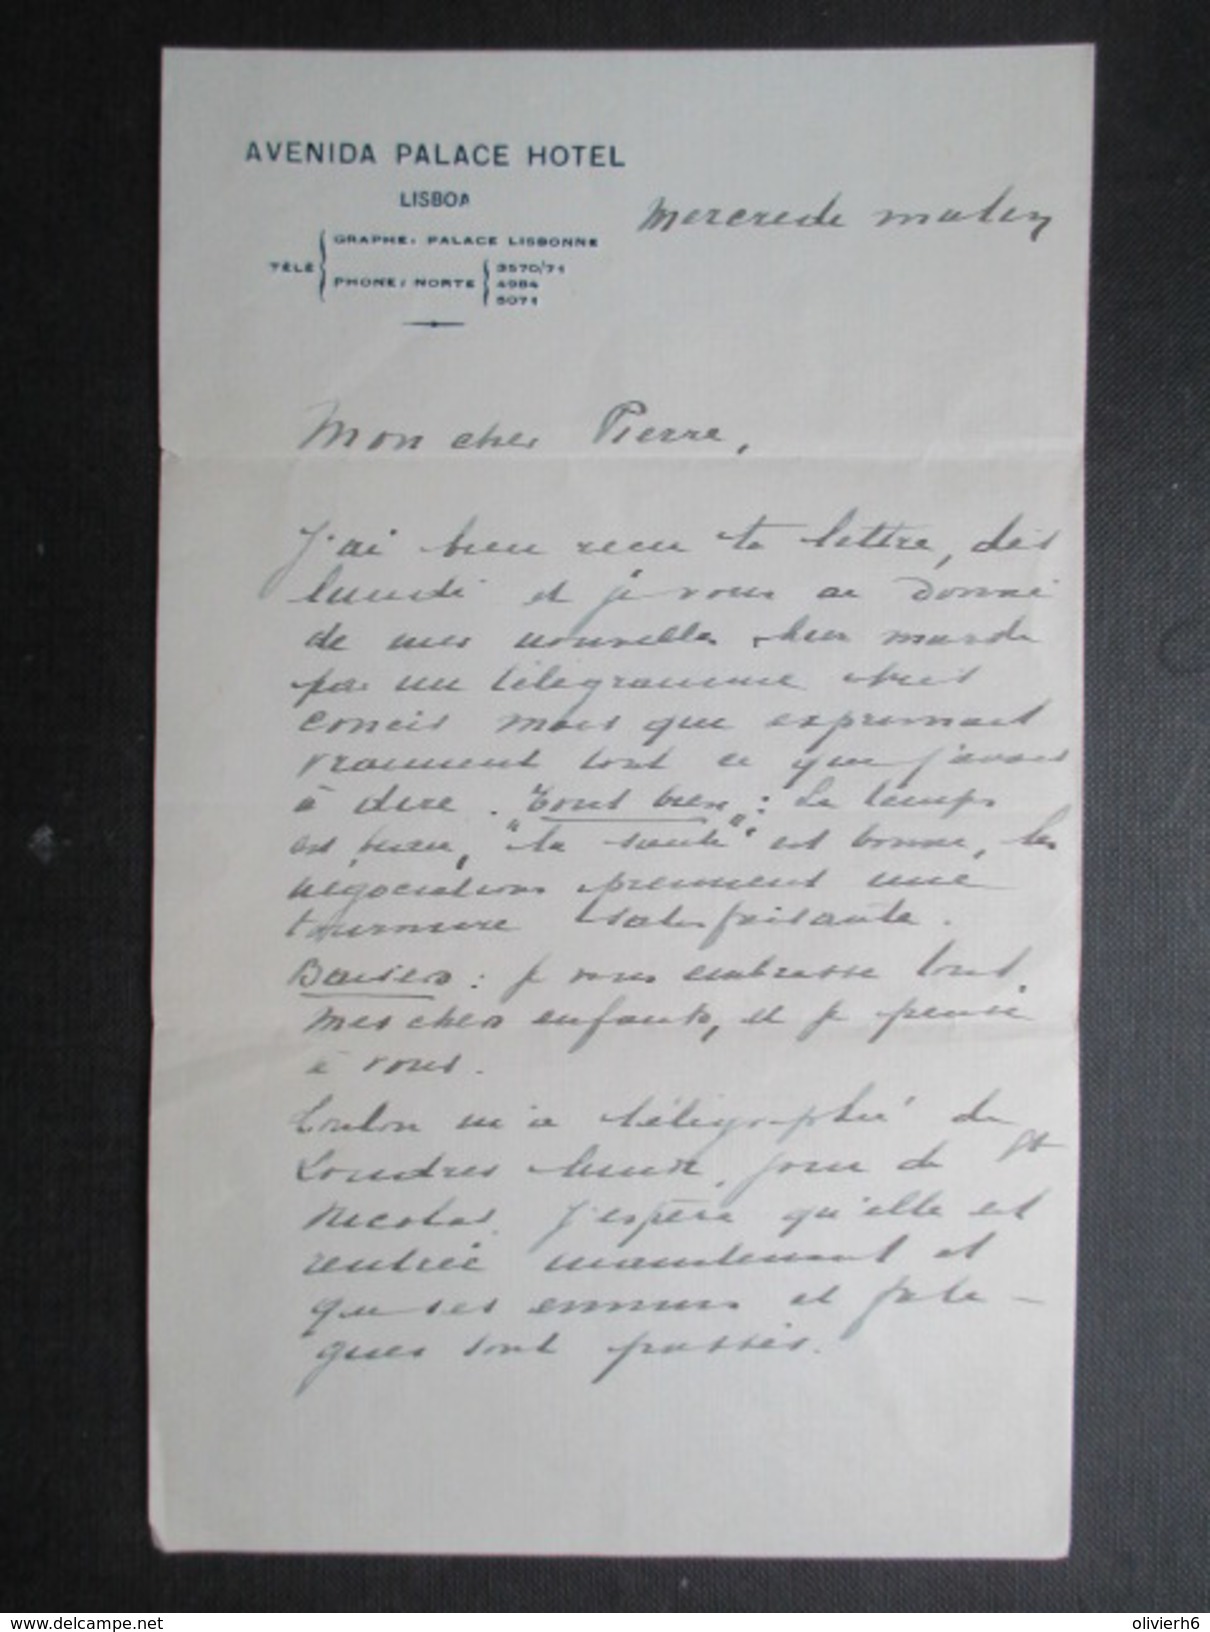 AVENIDA PALACE HOTEL
LISBOA
TÉLÉ
GRAPHE: PALACE LISBONNE
PHONE: NORTE
3570/71
4984
5071
Mercredi matin
Mon cher Pierre,
J'ai bien reçu ta lettre, dès
lundi et je vous ai donné
de mes nouvelles hier mardi
par un télégramme
concis mais qui exprimait
vraiment tout ce que j'avais
à dire. Tout bien : Le temps
est beau, "la santé" est bonne, les
négociations prennent une
tournure satisfaisante.
Baisers : je vous embrasse tous,
mes chers enfants, et je pense
à vous.
m'a télégraphié de
Londres lundi, jour de St
Nicolas. J'espère qu'elle est
rentrée maintenant et
que ses ennuis et fati-
gues sont passés.
www.delcampe.net
olivierh6